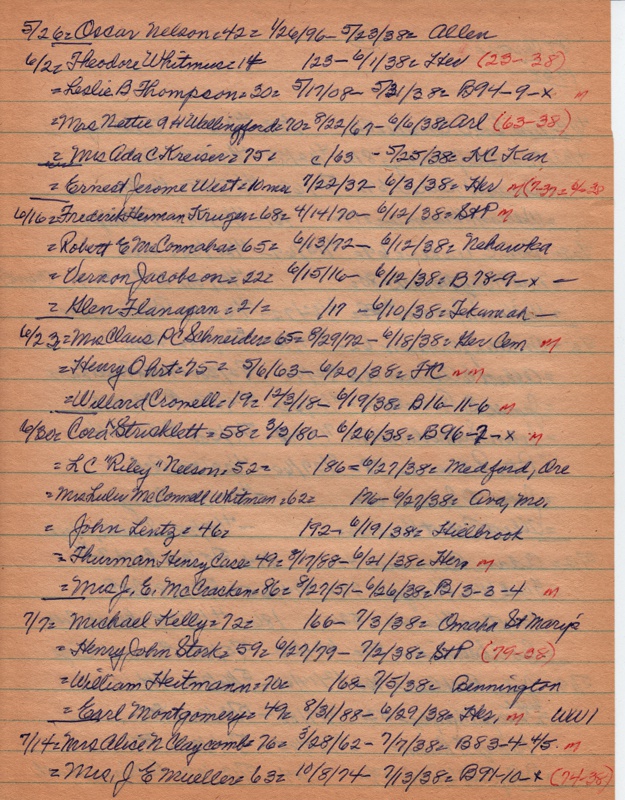 5/26= Oscar Nelson = 42 = 1/26/96 - 5/23/38 = Allen
6/2= Theodore Whitmus = 14 123 - 6/1/38 = Her (23-38)
= Leslie B Thompson = 30 = 5/17/08 - 5/31/38 = B94-9-x m
= Mrs Nettie 9H Wallingford = 70 = 8/22/67 - 6/6/38 = Arl (63-38)
= Mrs Ada C Kreiser = 75 = c/63 - 5/25/38 = KC Kan
= Ernest Jerome West = 10 mo 7/22/37 - 6/3/38 = Her m (7-37 = 6-38
6/16= Frederik Herman Kruger = 68 = 4/14/70 - 6/12/38 = St P m
= Robert E McConnaha = 65 = 6/13/72 - 6/12/38 = Nehawka
= Vernon Jacobson = 22 = 6/15/16 - 6/12/38 = B78-9-x -
= Glen Flanagan = 21 = /17 - 6/10/38 = Tekamah -
6/23= Mrs Claus PC Schneider = 65 = 8/29/72 - 6/18/38 = Her Cem m
= Henry Ohrt = 75 = 5/6/63 - 6/20/38 = FC nm
= Willard Cromell = 19 = 12/3/18 - 6/19/38 = B16-11-6 m
6/30= Cora Stricklett = 58 = 3/3/80 - 6/26/38 = B96-7-x m
= LC "Riley" Nelson = 52 = 186 = 6/27/38 = Medford, Ore
= Mrs Lulu McConnell Whitman = 62 = 176 - 6/27/38 = Ava, Mo.
= John Lentz = 46 = 192 - 6/19/38 = Hillbrook
= Thurman Henry Case = 49 = 8/17/88 - 6/21/38 = Her m
= Mrs J. E. McCracken = 86 = 8/27/51 - 6/26/38 = B13-3-4 m
7/7= Michael Kelly = 72 = 166 - 7/3/38 = Omaha St Mary's
= Henry John Stork = 59 = 6/27/79 - 7/2/38 = St P (79-38)
= William Heitmann = 70 = 168 - 7/5/38 = Bennington
= Earl Montgomery = 49 = 8/31/88 - 6/29/38 = Her, m WW1
7/14= Mrs Alice N Claycomb = 76 = 3/28/62 - 7/7/38 = B83-4-4/5 m
= Mrs, J E Mueller = 63 = 10/8/74 - 7/13/38 = B91-10-x (74-38)